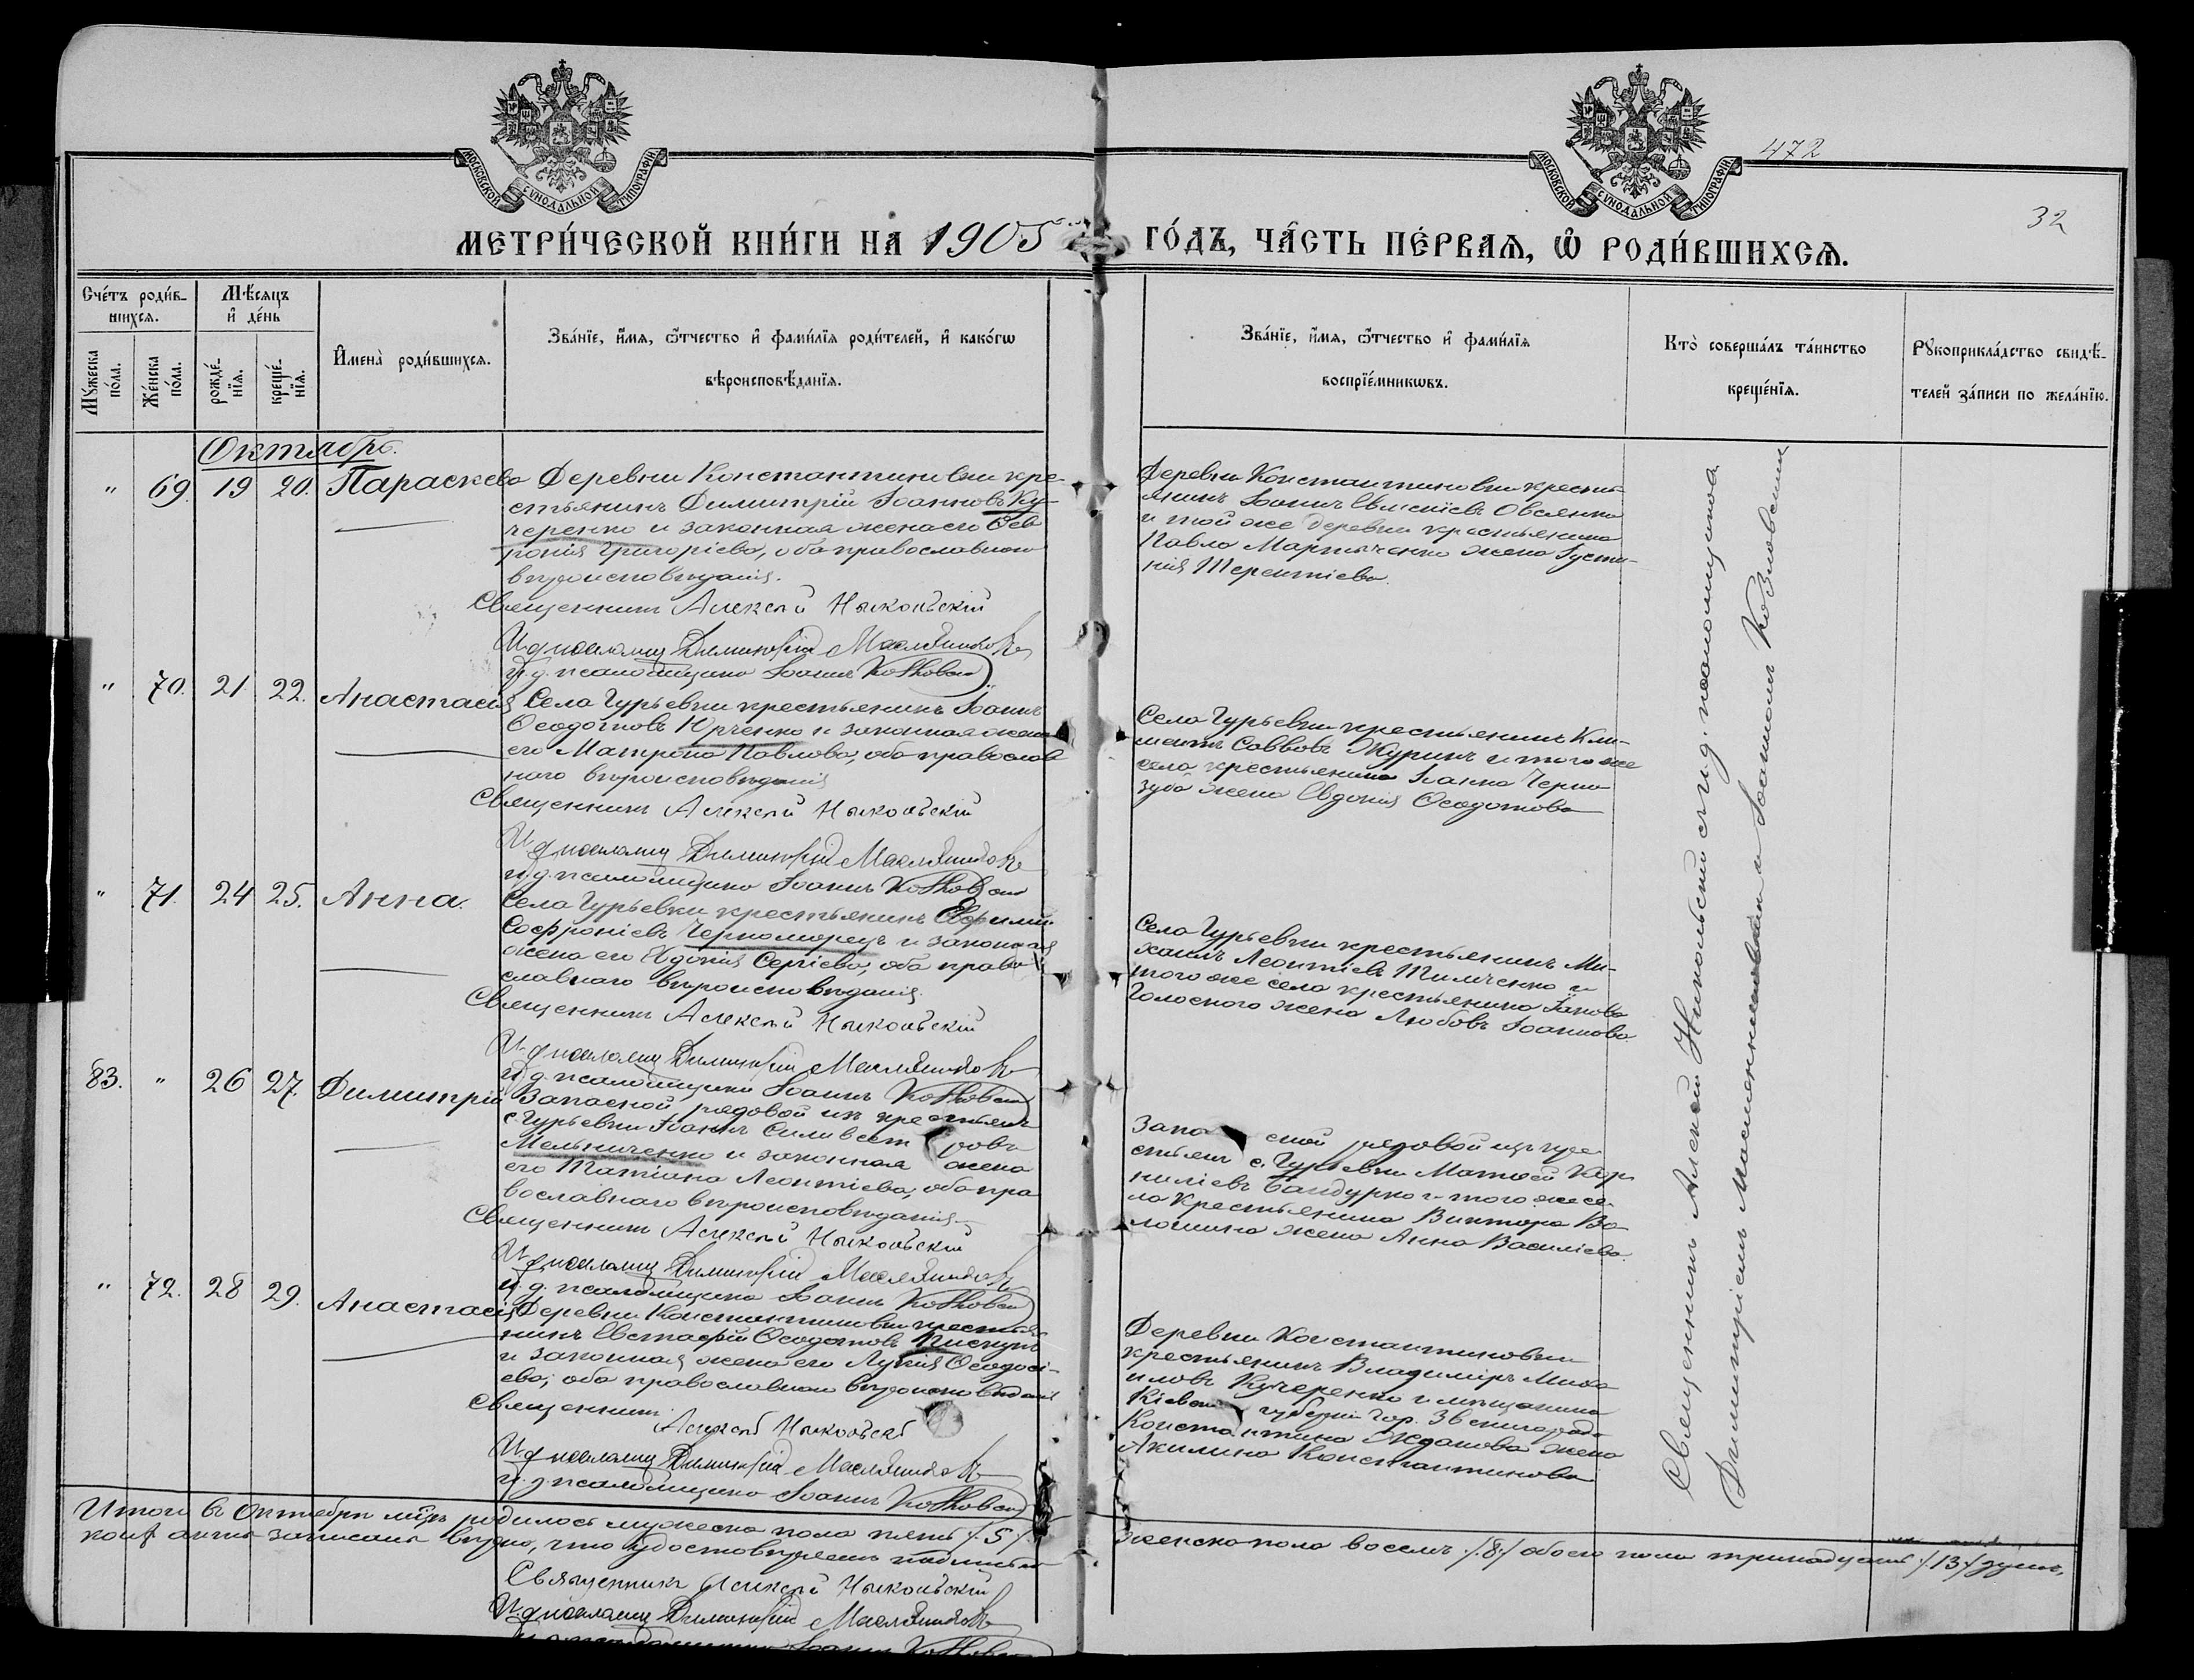 МОСКОВСКОЙ СѴНОДАЛЬНОЙ ТИПОГРАФІИ
МОСКОВСКОЙ СѴНОДАЛЬНОЙ ТИПОГРАФІИ
472
32
МЕТРИ́ЧЕСКОЙ КНИ́ГИ НА 1905 ГО́ДЪ, ЧА́СТЬ ПЕ́РВАѦ, Ѡ҆ РОДИ́ВШИХСѦ.
Сче́тъ роди́в-
шихсѧ.
Мꙋ́жеска по́ла.
Же́нска по́ла.
Мѣ́сѧцъ и҆ де́нь
рожде́-нїѧ.
креще́-нїѧ.
И҆мена̀ роди́вшихсѧ.
Зва́нїе, и҆́мѧ, ѻ҆́тчество и҆ фами́лїѧ роди́телей, и҆ како́гѡ
вѣроисповѣ́данїѧ.
Зва́нїе, и҆́мѧ, ѻ҆́тчество и҆ фами́лїѧ
воспрїе́мникѡвъ.
Кто̀ соверша́лъ та́инство
креще́нїѧ.
Рꙋкоприкла́дство свидѣ́-
телей за́писи по жела́нїю.
Октябрь.
" 69. 19 20. Параскева
Деревни Константиновки кре-
стьянинъ Димитрій Іоанновъ Ку-
черенко и законная жена его Фев
ронія Григоріева, оба православнаго
вѣроисповѣданія.
Священникъ Алексѣй Никольскій
И. д. псаломщ. Димитрій Масляниковъ
И. д. псаломщика Іоаннъ Козловскій
Деревни Константиновки кресть-
янинъ Іоаннъ Овсянко
и той же деревни крестьянина
Павла Мартыченко жена Іусти-
нія Терентіева.
" 70. 21 22. Анастасія
Села Гурьевки крестьянинъ Іоаннъ
Ѳеодотовъ Юрченко и законная жена
его Матрона Павлова, оба православ
наго вѣроисповѣданія
Священникъ Алексѣй Никольскій
И. д. псаломщ. Димитрій Масляниковъ
и. д. псаломщика Іоаннъ Козловскій
Села Гурьевки крестьянинъ Кли-
ментъ Саввовъ Журинъ и того же
села крестьянина Іоанна Черно-
зуба жена Евдокія Ѳеодотова
" 71. 24 25. Анна.
Села Гурьевки крестьянинъ Евфимій
Софроніевъ Черноморецъ и законная
жена его Евдокія Сергіева, оба право
славнаго вѣроисповѣданія.
Священникъ Алексѣй Никольскій
И. д. псаломщ. Димитрій Масляниковъ
и. д. псаломщика Іоаннъ Козловскій
Села Гурьевки крестьянинъ Ми-
хаилъ Леонтіевъ Тимченко и
того же села крестьянина Іакова
Голоснаго жена Любовь Іоаннова.
83. " 26 27. Димитрій
Запасной рядовой изъ крестьянъ
с. Гурьевки Іоаннъ Силивестровъ
Мельниченко и законная жена
его Татіана Леонтіева, оба пра
вославнаго вѣроисповѣданія.
Священникъ Алексѣй Никольскій
И. д. псаломщ. Димитрій Масляниковъ
и. д. псаломщика Іоаннъ Козловскій
Запасной рядовой изъ кре
стьянъ с. Гурьевки Матѳей Кор-
ниліевъ Бандурко и того же се-
ла крестьянина Виктора Во-
лошина жена Анна Василіева.
" 72. 28 29. Анастасія
Деревни Константиновки крестья
нинъ Евстафій Ѳеодотовъ Пискунъ
и законная жена его Лукія Ѳеодосі-
ева, оба православнаго вѣроисповѣданія
Священникъ
Алексѣй Никольскій
И. д. псаломщ. Димитрій Масляниковъ
и. д. псаломщика Іоаннъ Козловскій
Деревни Константиновки
крестьянинъ Владиміръ Миха
иловъ Кучеренко и мѣщанина
Кіевской губерніи гор. Звенигородки
Константина Жданова жена
Акилина Константинова
Священникъ Алексѣй Никольскій съ и. д. псаломщика
Димитріемъ Масленниковымъ и Іоанномъ Козловскимъ
Итого въ Октябрѣ м-цѣ родилось мужеска пола пять /5/ женска пола восемь /8/ обоего пола тринадцать /13/ душъ,
записано вѣрно, что удостовѣряемъ подписью
Священникъ Алексѣй Никольскій
И. д. псаломщ. Димитрій Масляниковъ
и. д. псаломщика Іоаннъ Козловскій